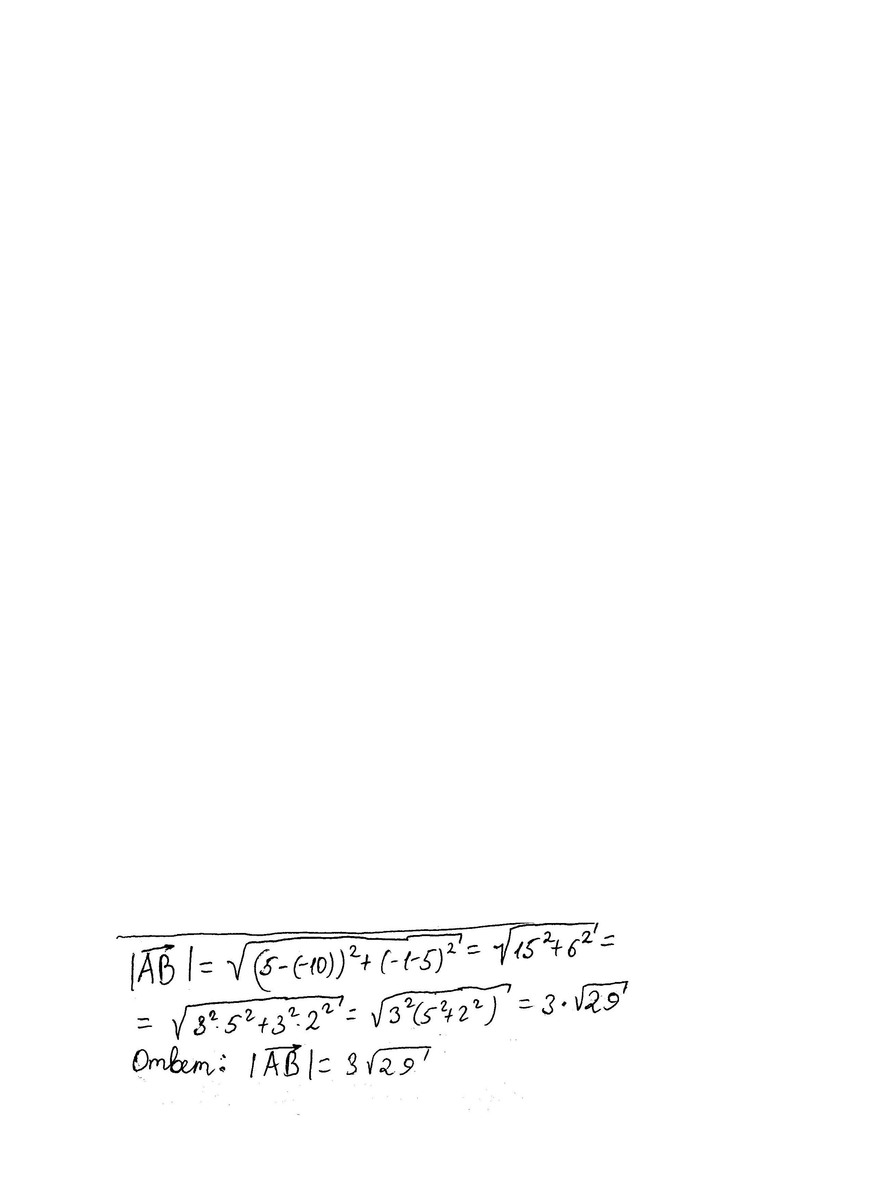 |AB| = √(5-(-10))²+(-1-5)² = √15²+6² =
= √3²·5²+3²·2² = √3²(5²+2²) = 3·√29
Ответ: |AB| = 3√29